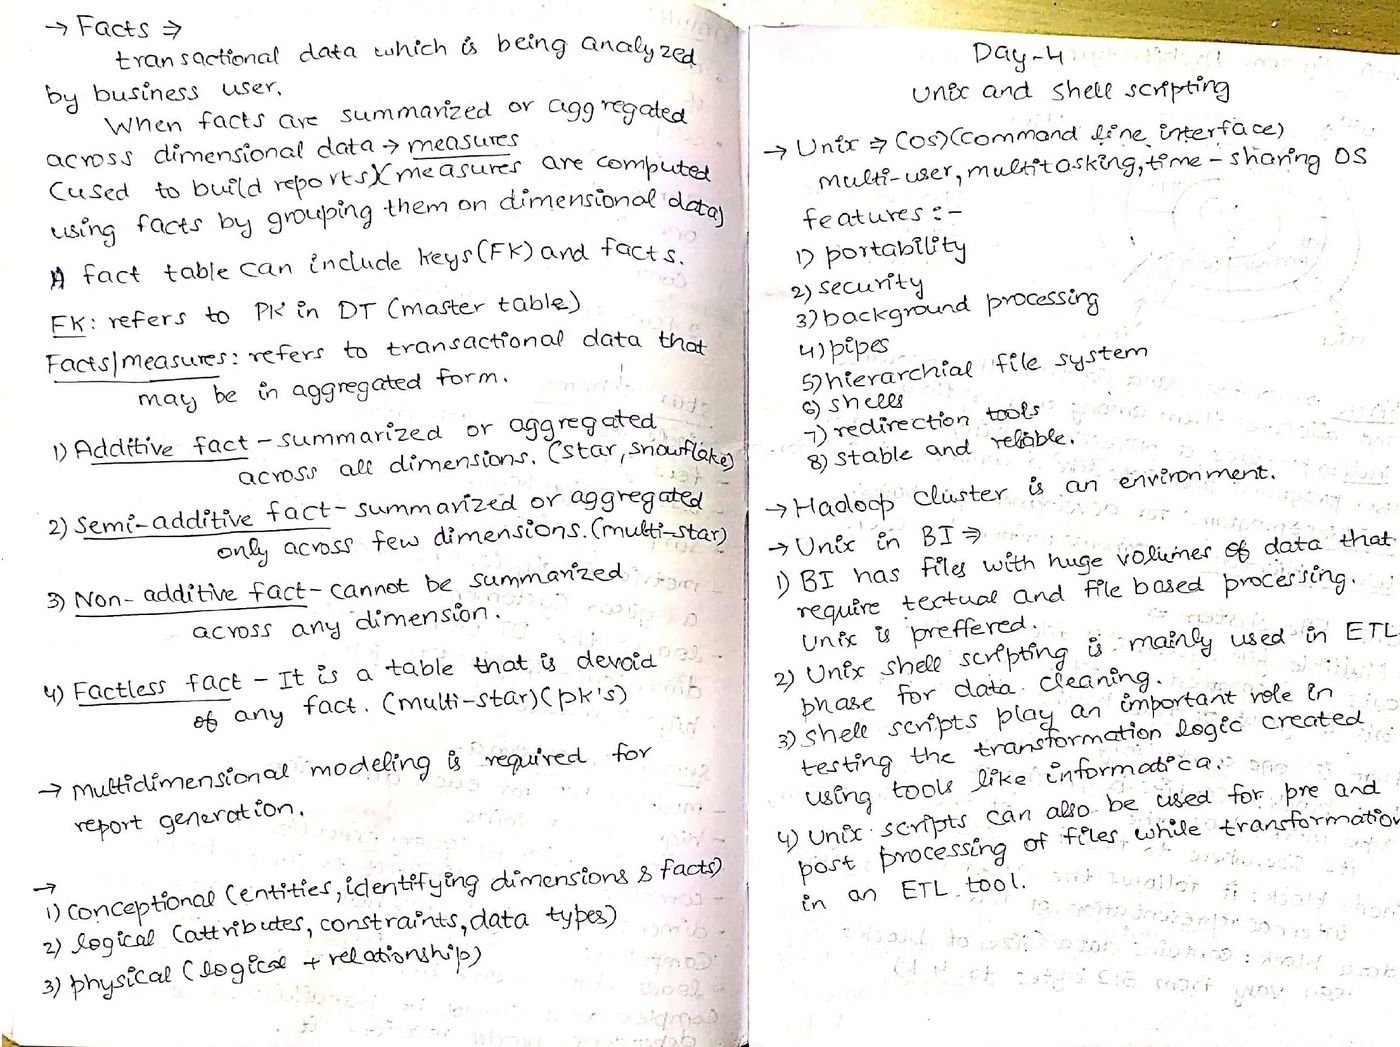 → Facts ⇒
transactional data which is being analyzed
by business user.
When facts are summarized or aggregated
across dimensional data → measures
(used to build reports)(measures are computed
using facts by grouping them on dimensional data)
A fact table can include keys(FK) and facts.
FK: refers to PK in DT (master table)
Facts/measures: refers to transactional data that
may be in aggregated form.
1) Additive fact - summarized or aggregated
across all dimensions. (star, snowflake)
2) Semi-additive fact - summarized or aggregated
only across few dimensions. (multi-star)
3) Non-additive fact - cannot be summarized
across any dimension.
4) Factless fact - It is a table that is devoid
of any fact. (multi-star)(pk's)
→ multidimensional modeling is required for
report generation.
→
1) conceptional (entities, identifying dimensions & facts)
2) logical (attributes, constraints, data types)
3) physical (logical + relationship)
Day-4
Unix and shell scripting
→ Unix ⇒ (OS)(command line interface)
multi-user, multitasking, time-sharing OS
features :-
1) portability
2) security
3) background processing
4) pipes
5) hierarchial file system
6) shells
7) redirection tools
8) stable and reliable.
→ Hadoop cluster is an environment.
→ Unix in BI ⇒
1) BI has files with huge volumes of data that
require textual and file based processing.
Unix is preffered.
2) Unix shell scripting is mainly used in ETL
phase for data cleaning.
3) shell scripts play an important role in
testing the transformation logic created
using tools like informatica.
4) Unix scripts can also be used for pre and
post processing of files while transformation
in an ETL tool.